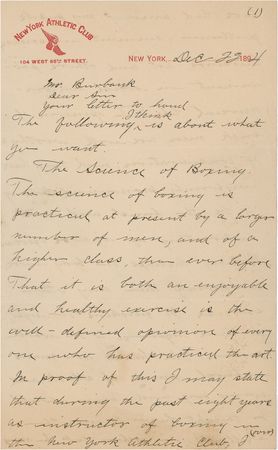 (1)
NEW YORK ATHLETIC CLUB
104 WEST 55TH STREET.
NEW YORK, Dec 23 1894
Mr Burbank
Dear Sir
Your letter to hand
I think
The following is about what
you want.
The Science of Boxing.
The science of boxing is
practiced at present by a larger
number of men, and of a
higher class, than ever before
That it is both an enjoyable
and healthy exercise is the
well-defined opinion of every
one who has practiced the art.
In proof of this I may state
that during the past eight years
as instructor of boxing in
the New York Athletic Club, I
(over)